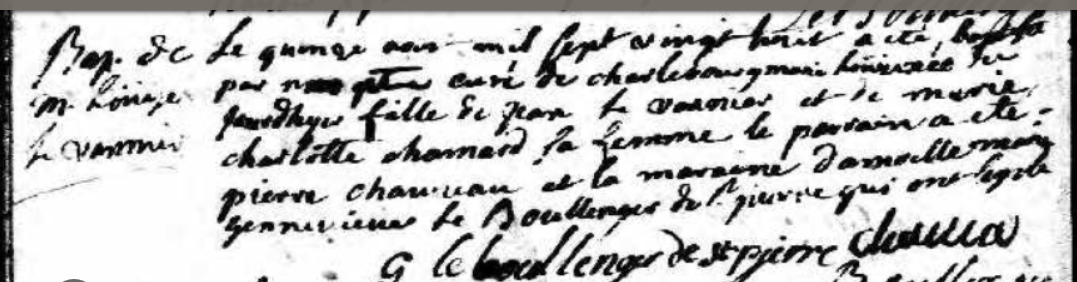 Bap. de
m. Louise
le vannier
Le quinze aout mil sept vingt huit a eté baptisé
par nous ptre curé de charlebourg marie Louise née du
jourdhuy fille de jean le vannier et de marie
charlotte chamard sa femme le parrain a eté
pierre chauveau et la maraine damoiselle marie
gennevieve le Boullenger de st pierre qui ont signé
G le boullenger de st pierre chauvea